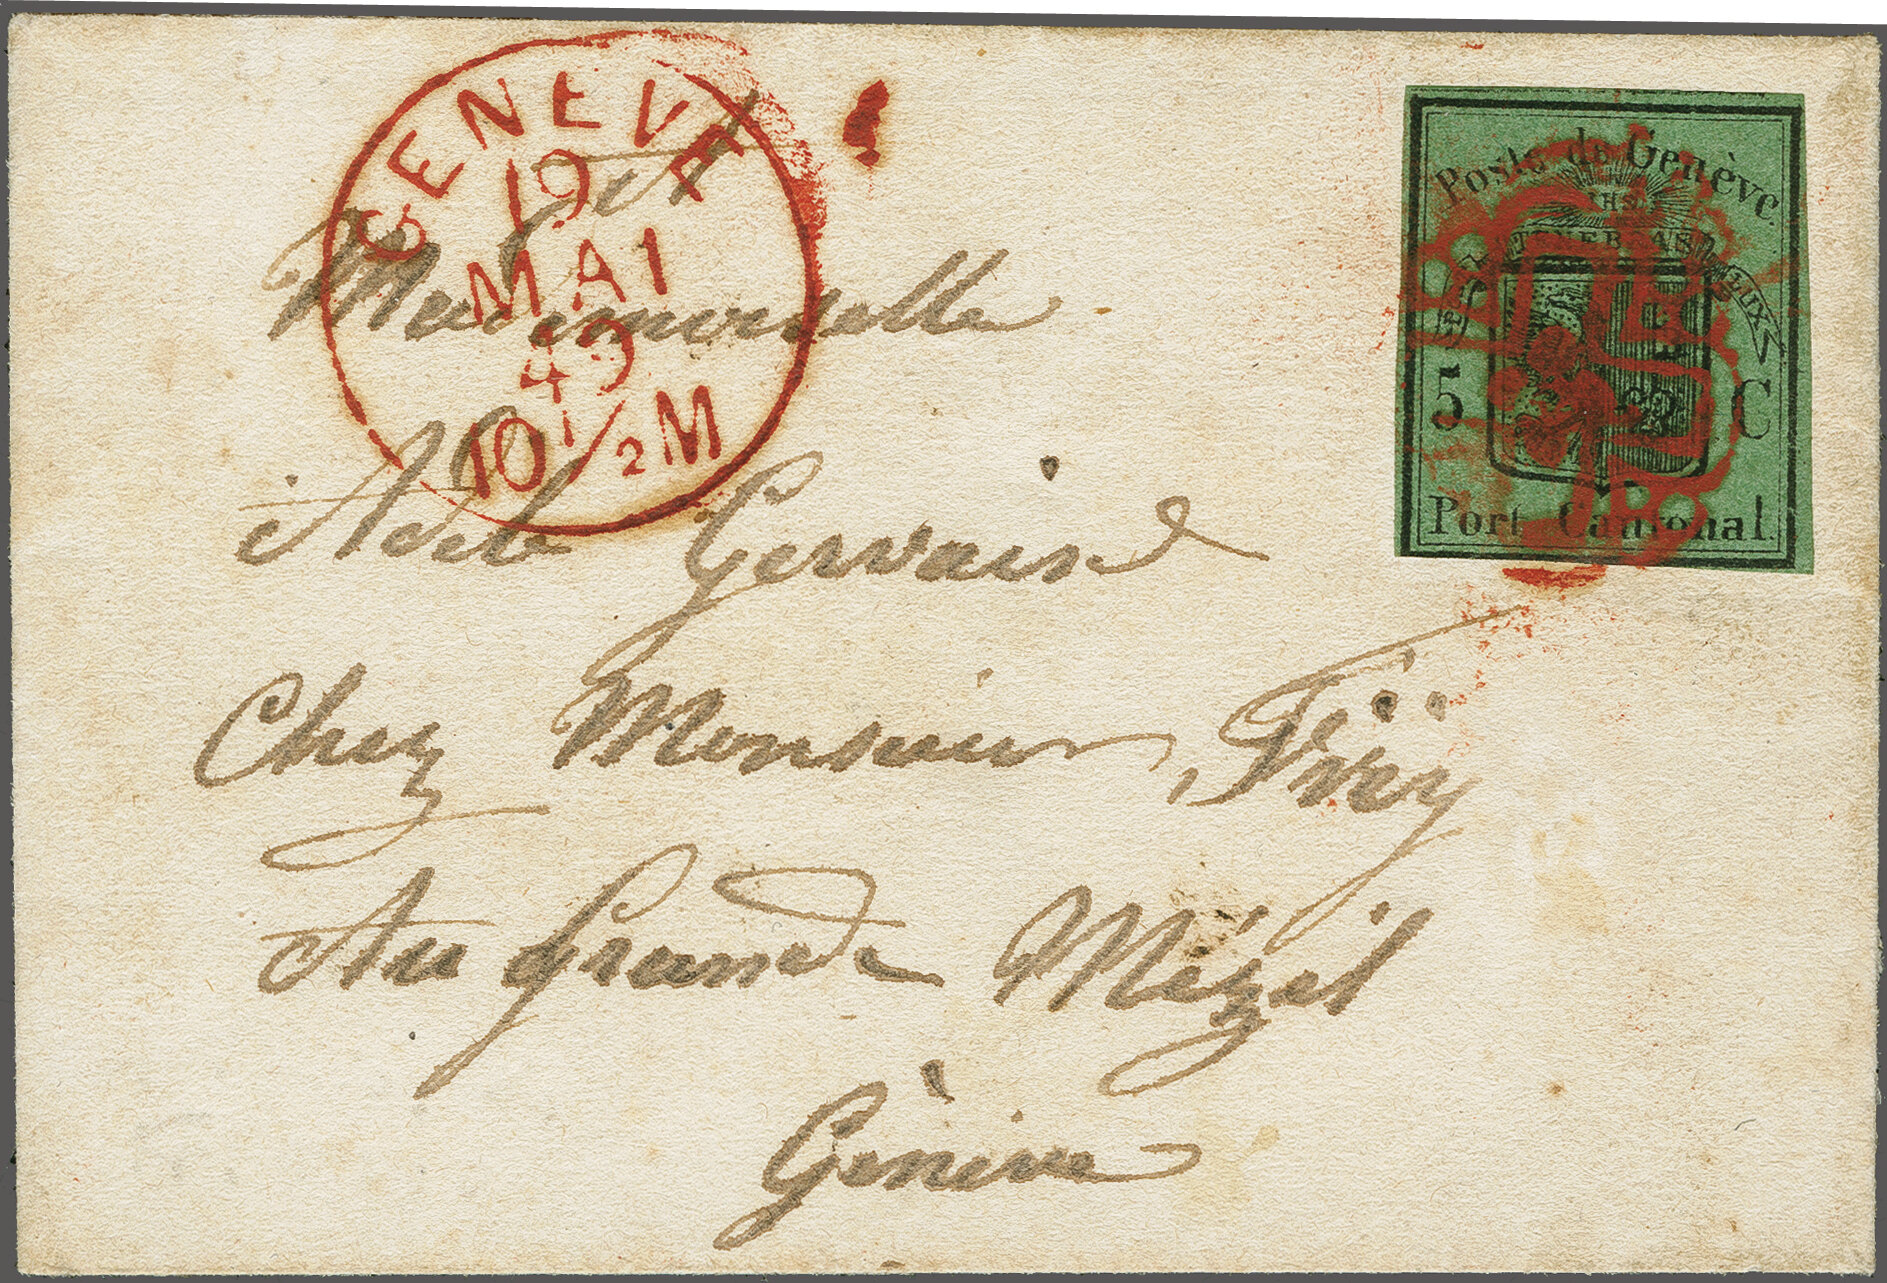 GENÈVE
19
MAI
49
10 1/2 M
Poste de Genève.
POST TENEBRAS LUX
5 C
Port Cantonal.
Mademoiselle
Gervais
Chez Monsieur
Au Grande Mézel
Genève